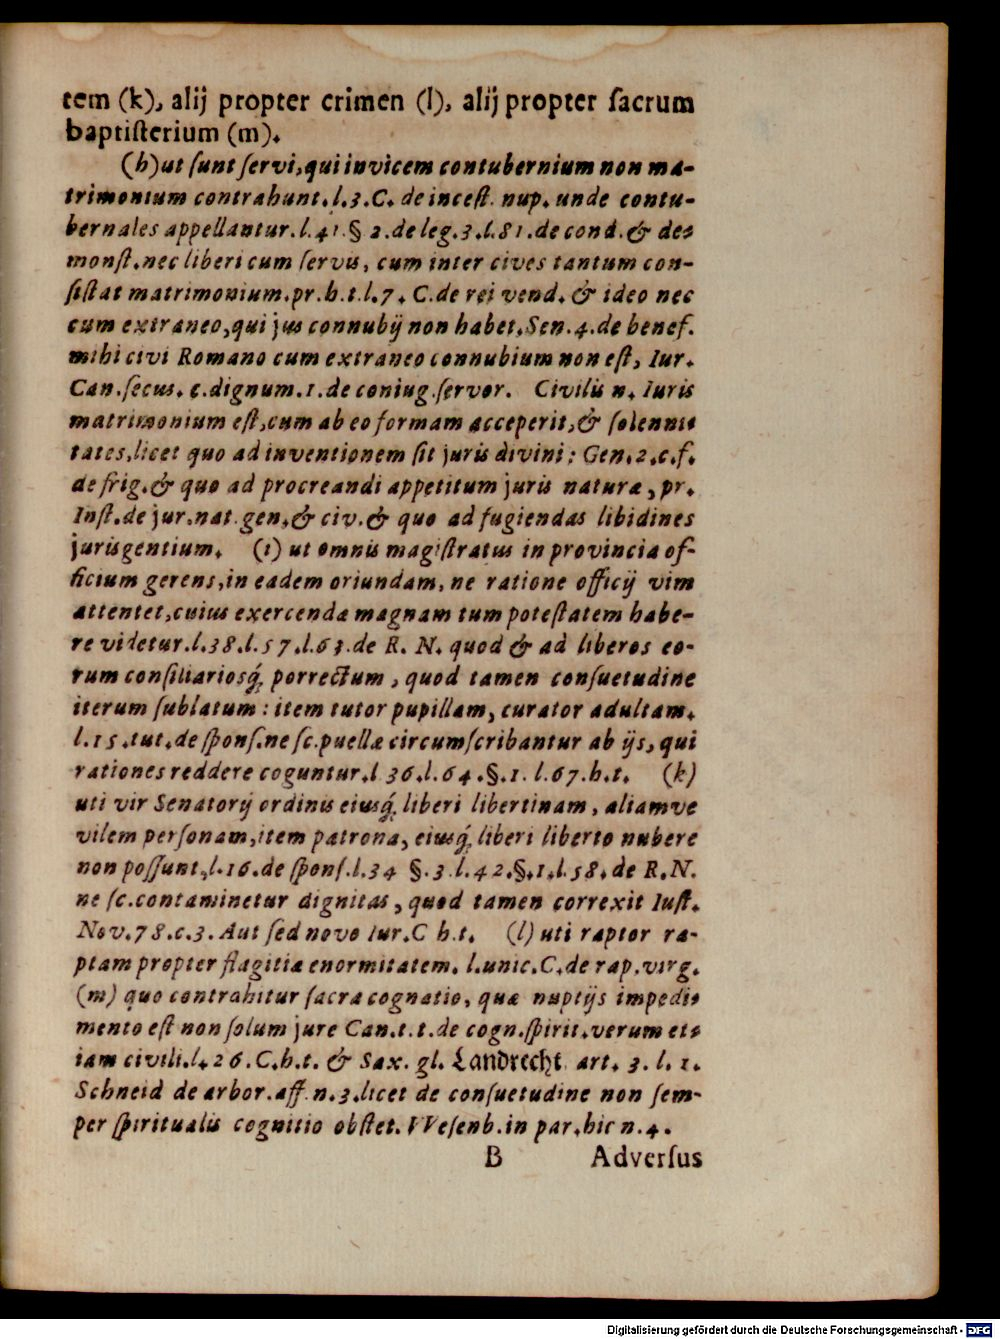 tem (k), alij propter crimen (l), alij propter ſacrum
baptiſterium (m).
(h) ut ſunt ſervi, qui invicem contubernium non ma-
trimonium contrahunt. l. 3. C. de inceſt. nup. unde contu-
bernales appellantur. l. 41. § 2. de leg. 3. l. 81. de cond. & de-
monſt. nec liberi cum ſervis, cum inter cives tantum con-
ſiſtat matrimonium. pr. h. t. l. 7. C. de rei vend. & ideo nec
cum extraneo, qui jus connubij non habet. Sen. 4. de benef.
mihi civi Romano cum extraneo connubium non eſt, Iur.
Can. ſecus. c. dignum. 1. de coniug. ſervor. Civilis n. Iuris
matrimonium eſt, cum ab eo formam acceperit, & ſolenni-
tates, licet quo ad inventionem ſit juris divini: Gen. 2. c. f.
de frig. & quo ad procreandi appetitum juris naturæ, pr.
Inſt. de jur. nat. gen. & civ. & quo ad fugiendas libidines
juris gentium. (i) ut omnis magiſtratus in provincia of-
ficium gerens, in eadem oriundam, ne ratione officij vim
attentet, cuius exercendæ magnam tum poteſtatem habe-
re videtur. l. 38. l. 57. l. 63. de R. N. quod & ad liberos eo-
rum conſiliariosq́; porrectum, quod tamen conſuetudine
iterum ſublatum: item tutor pupillam, curator adultam.
l. 15. tut. de ſponſ. ne ſc. puellæ circumſcribantur ab ijs, qui
rationes reddere coguntur. l 36. l. 64. §. 1. l. 67. h. t. (k)
uti vir Senatorij ordinis eiusq́; liberi libertinam, aliamve
vilem perſonam, item patrona, eiusq́; liberi liberto nubere
non poſſunt, l. 16. de ſponſ. l. 34 §. 3. l. 42. §. 1. l. 58. de R. N.
ne ſc. contaminetur dignitas, quod tamen correxit Iuſt.
Nov. 78. c. 3. Aut ſed novo Iur. C h. t. (l) uti raptor ra-
ptam propter flagitiæ enormitatem. l. unic. C. de rap. virg.
(m) quo contrahitur ſacra cognatio, quæ nuptijs impedi-
mento eſt non ſolum jure Can. t. t. de cogn. ſpirit. verum et-
iam civili. l. 26. C. h. t. & Sax. gl. Landrecht. art. 3. l. 1.
Schneid de arbor. aff. n. 3. licet de conſuetudine non ſem-
per ſpiritualis cognitio obſtet. VVeſenb. in par. hic n. 4.
B Adverſus
Digitalisierung gefördert durch die Deutsche Forschungsgemeinschaft - DFG